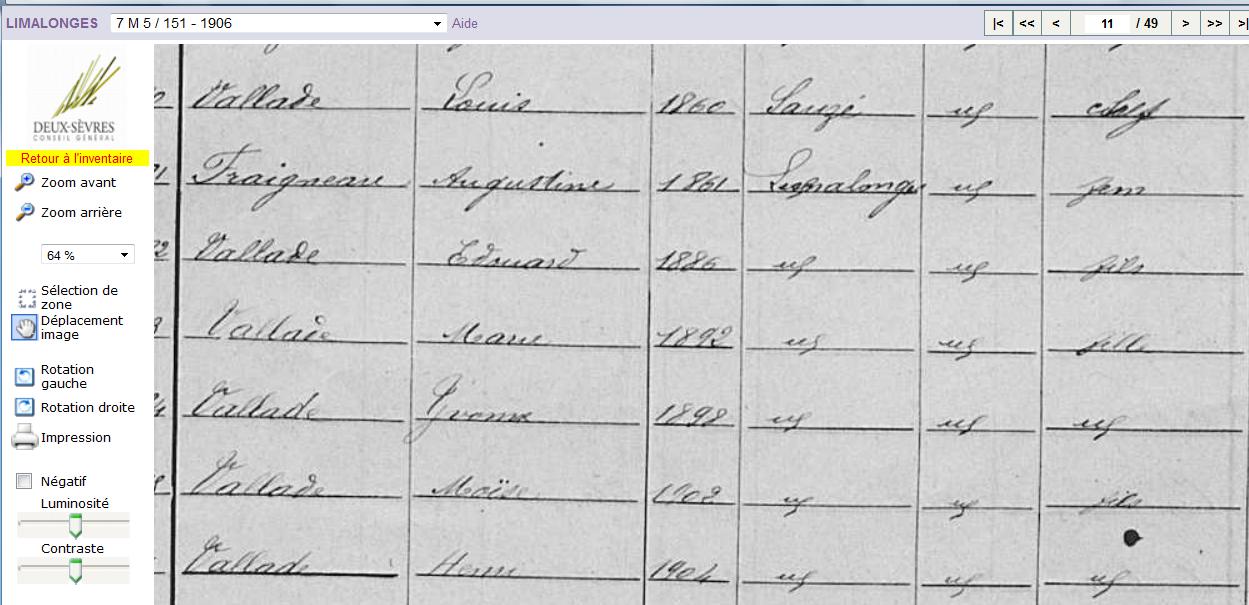 LIMALONGES 7 M 5 / 151 - 1906 Aide |< << < 11 / 49 > >> >|
DEUX-SÈVRES
CONSEIL GÉNÉRAL
Retour à l'inventaire
Zoom avant
Zoom arrière
64 %
Sélection de
zone
Déplacement
image
Rotation
gauche
Rotation droite
Impression
Négatif
Luminosité
Contraste
Vallade Louis 1860 Sauzé id chef
Fraigneau Augustine 1861 Limalonges id fem
Vallade Edouard 1886 id id fils
Vallade Marie 1892 id id fille
Vallade Yvonne 1898 id id id
Vallade Moïse 1902 id id fils
Vallade Henri 1904 id id id